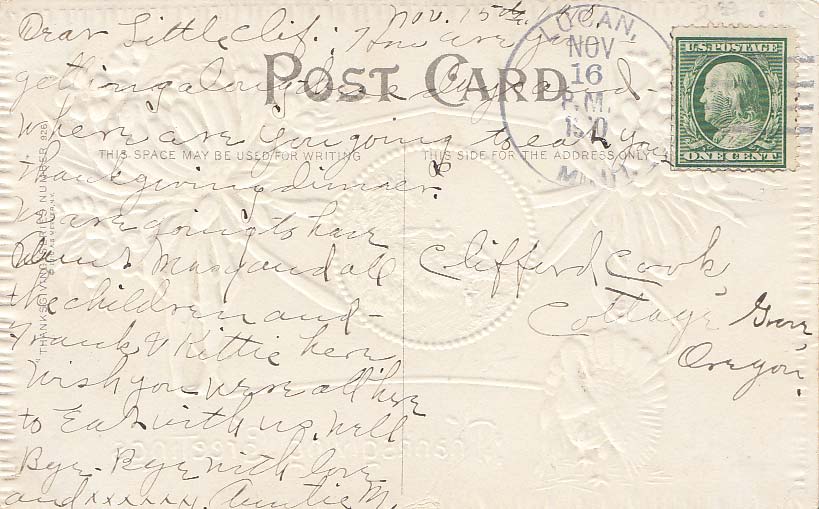 Nov. 15th,
Dear Little Clif: How are you
getting along these days and
Where are you going to eat your
Thanksgiving dinner?
We are going to have
Aunt Mary and all
the children and
Frank & Kittie here
Wish you were all here
to Eat with us. Well
Bye-Bye with love
and xxxxxx. Auntie M.
POST CARD
THIS SPACE MAY BE USED FOR WRITING
THIS SIDE FOR THE ADDRESS ONLY
"THANKSGIVING" SERIES NUMBER 926
NOV
16
P.M.
U.S. POSTAGE
ONE CENT
Clifford Cook,
Cottage Grove,
Oregon.